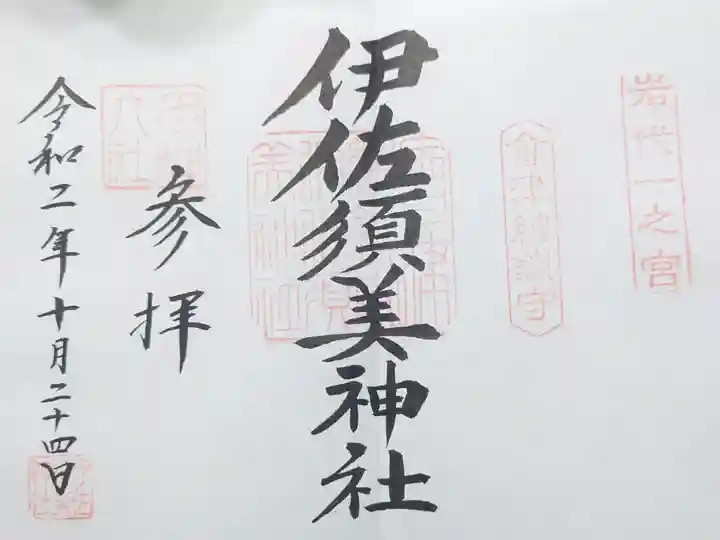 岩代一之宮
會津総鎮守
伊佐須美神社
参拝
令和二年十月二十四日